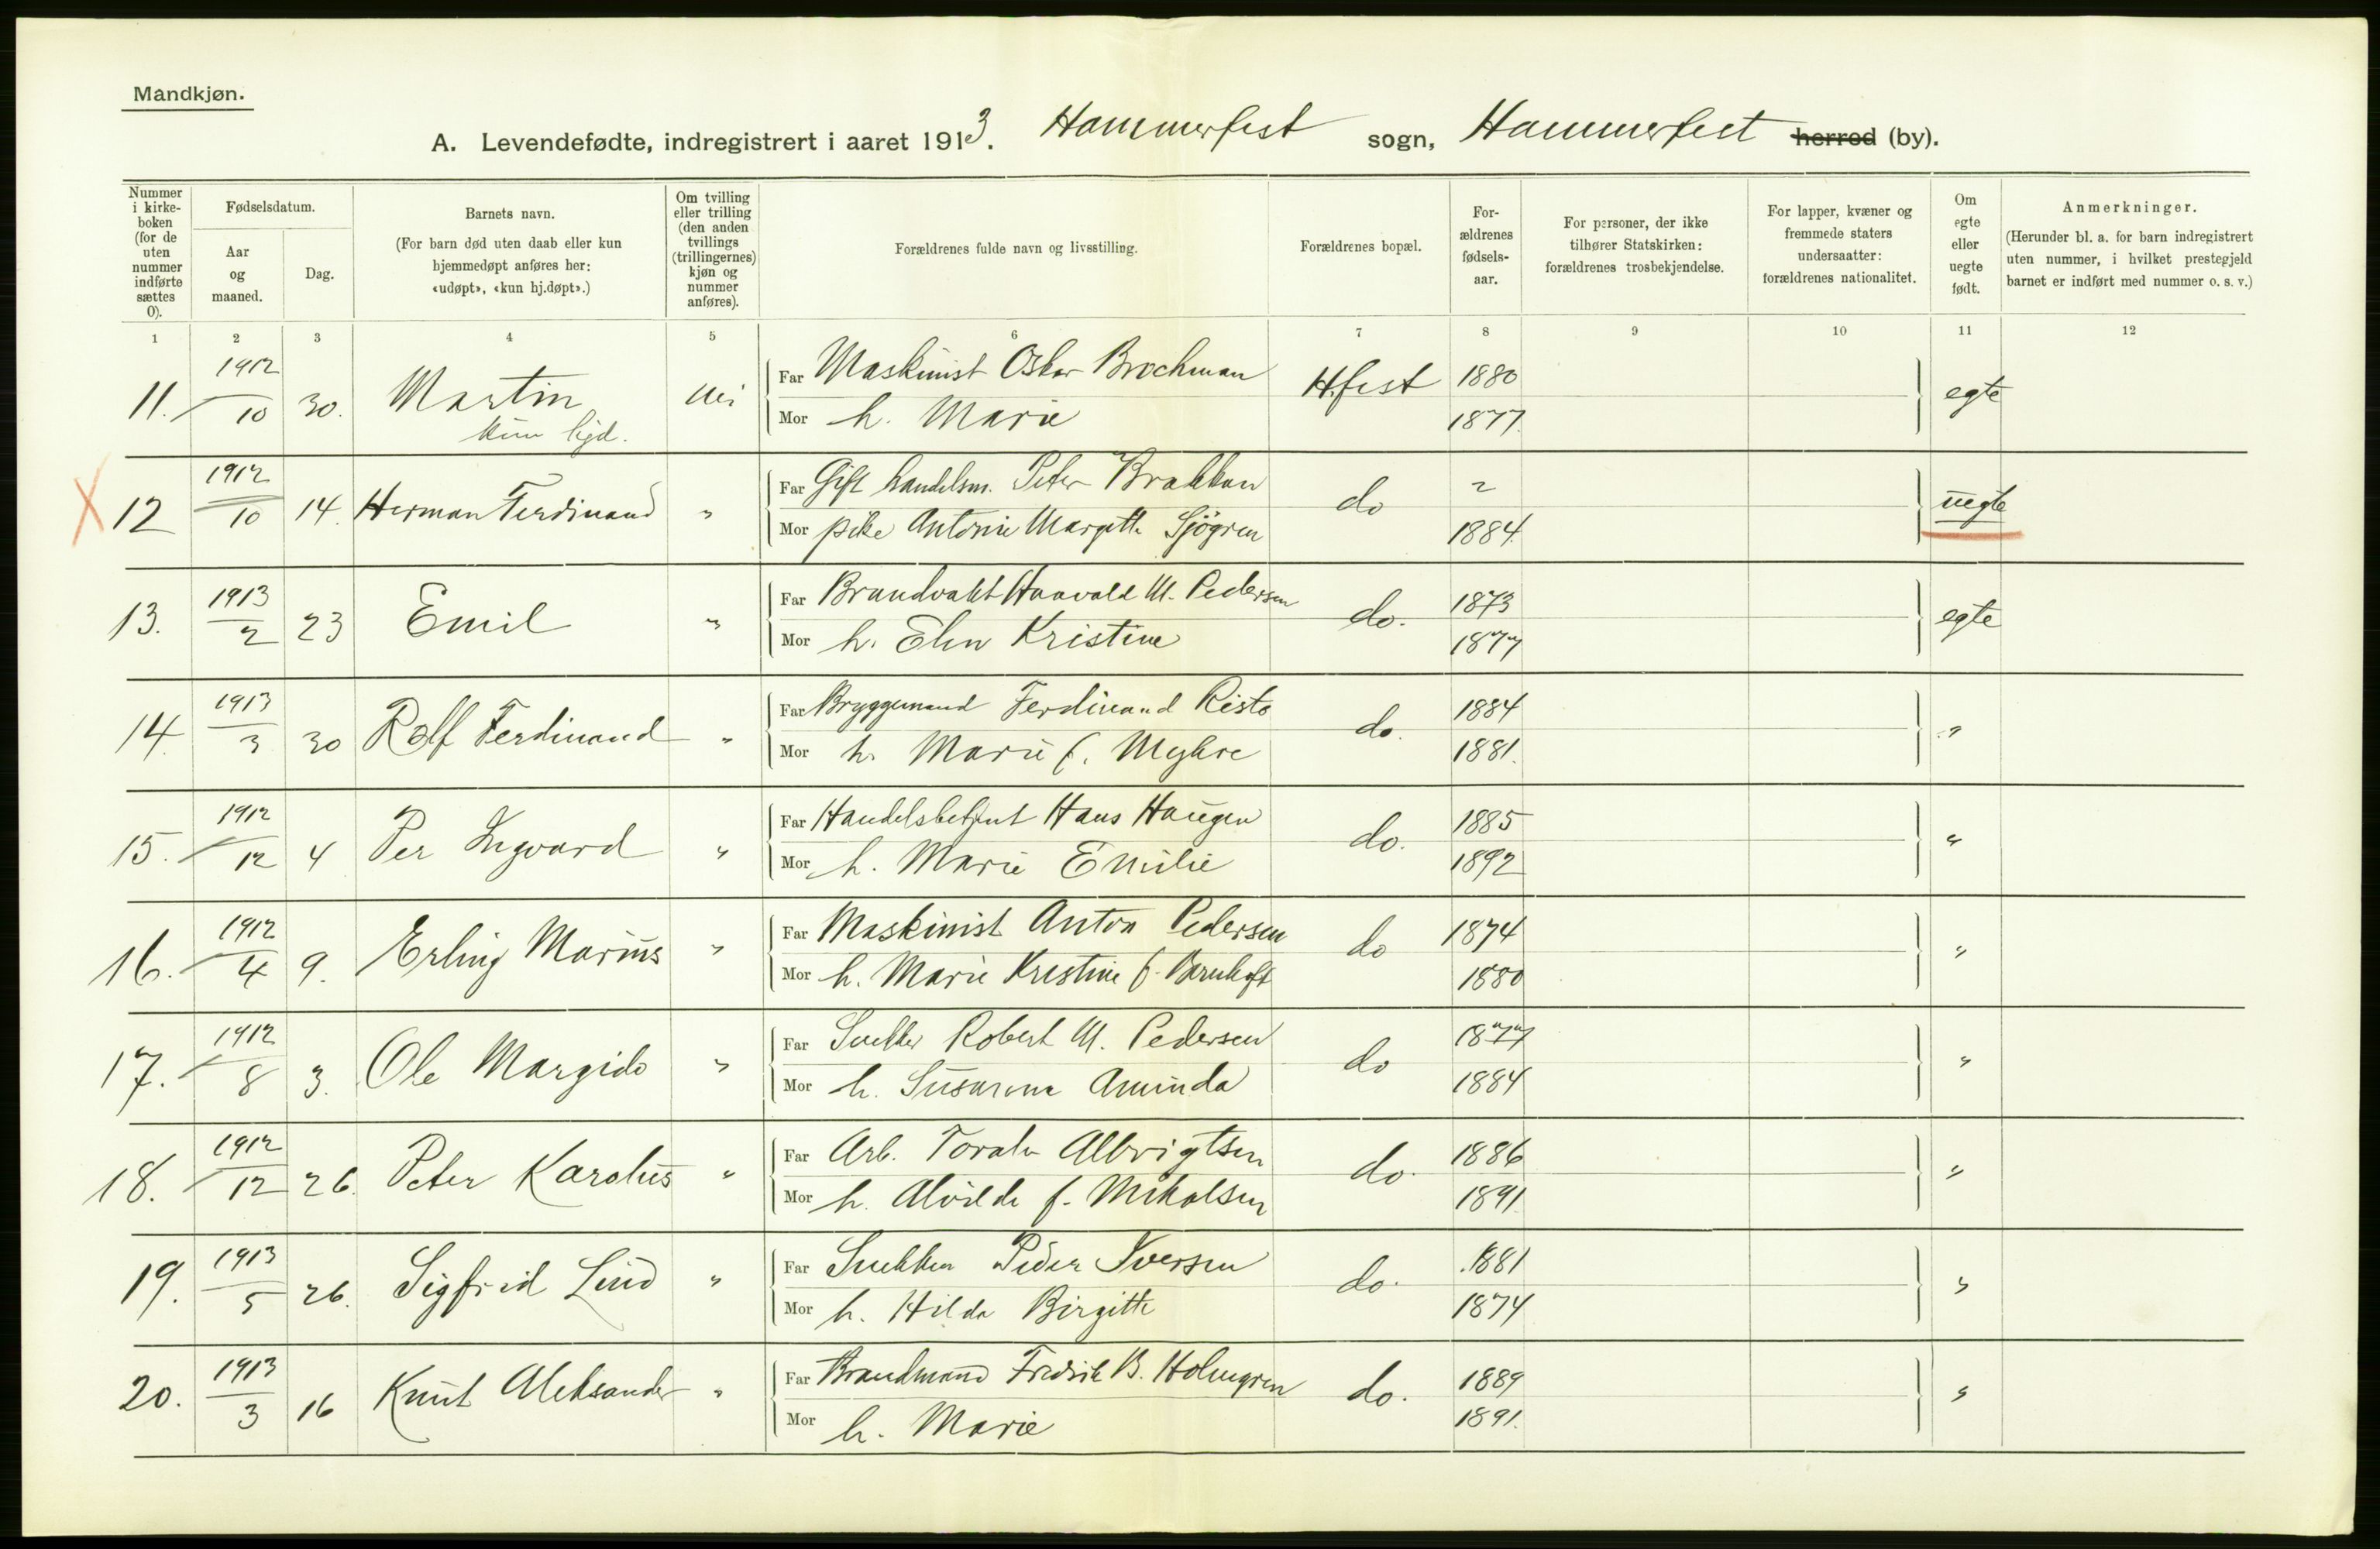 Mandkjøn.
A. Levendefødte, indregistrert i aaret 1913. Hammerfest sogn, Hammerfest herred (by).
Nummer i kirke-boken (for de uten nummer indførte sættes 0).
Fødselsdatum.
Aar og maaned.
Dag.
Barnets navn.
(For barn død uten daab eller kun hjemmedøpt anføres her: «udøpt», «kun hj.døpt».)
Om tvilling eller trilling (den anden tvillings (trillingernes) kjøn og nummer anføres).
Forældrenes fulde navn og livsstilling.
Forældrenes bopæl.
For-ældrenes fødsels-aar.
For personer, der ikke tilhører Statskirken: forældrenes trosbekjendelse.
For lapper, kvæner og fremmede staters undersaatter: forældrenes nationalitet.
Om egte eller uegte født.
Anmerkninger.
(Herunder bl. a. for barn indregistrert uten nummer, i hvilket prestegjeld barnet er indført med nummer o. s. v.)
1 2 3 4 5 6 7 8 9 10 11 12
11. 1912/10 30. Martin Far Maskinist Oskar Brochman H.fest 1880 egte
Mor h. Marie 1877.
X 12 1912/10 14. Herman Ferdinand " Far Gift handelsm. Peter Brakkan do
Mor pike Antonie Margitte Sjögren 1884. uegte
13. 1913/2 23 Emil " Far Brandvakt Haavald M. Pedersen do. 1873 egte
Mor h. Elen Kristine 1877
14. 1913/3 30 Rolf Ferdinand " Far Bryggemand Ferdinand Risto do. 1884 "
Mor h. Marie f. Myhre 1881.
15. 1912/12 4 Per Ingvard " Far Handelsbetjent Hans Haugen do. 1885 "
Mor h. Marie Emilie 1892
16. 1912/4 9. Erling Marius " Far Maskinist Anton Pedersen do 1874 "
Mor h. Marie Kristine f. Bernhoft 1880
17. 1912/8 3. Ole Margido " Far Snekker Robert M. Pedersen do 1877 "
Mor h. Susanna Aminda 1884
18. 1912/12 26. Peter Karolus " Far Arb. Toralv Albrigtsen do. 1886 "
Mor h. Alvilde f. Mikalsen 1891
19. 1913/5 26. Sigfrid Lind " Far Snekker Peder Iversen do. 1881 "
Mor h. Hilda Birgitte 1874
20. 1913/3 16 Knut Aleksander " Far Brandmand Fredrik B. Holmgren do. 1889 "
Mor h. Marie 1891.